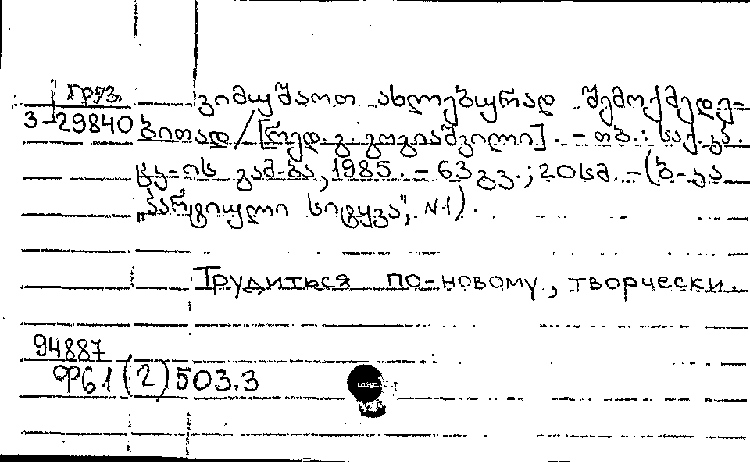 груз.
3-29840
ვიმუშაოთ ახლებურად შემოქმედე-
ბითად / [რედ. გ. გოგიაშვილი]. - თბ.: საქ. კპ
ცკ-ის გამ-ბა, 1985. - 63 გვ.; 20 სმ. - (ბ-კა
„პარტიული სიტყვა", N1).
Трудиться по-новому, творчески.
94887
Ф61(2)503.3